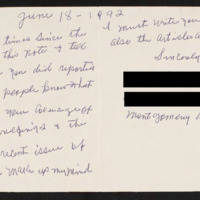 June 18-1992
times since the
this note & tel
you did reported
people know what
your coverage of
& the
recent issue of
make up my mind
I must write you
also the articles
Sincerely
Montgomery